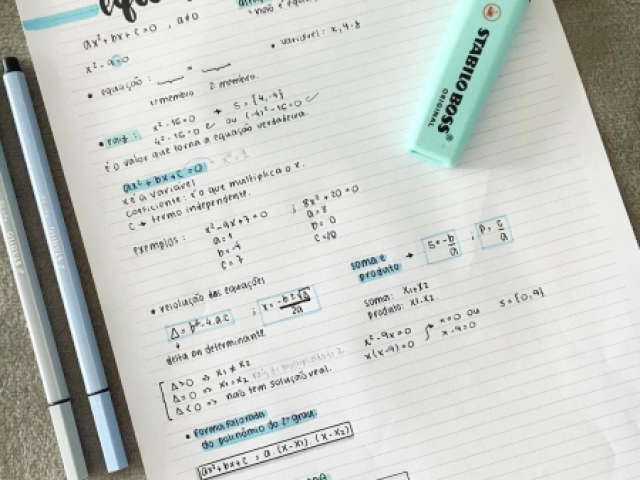 ax²+bx+c=0, a≠0
• equação: ___ = ___
1º membro 2º membro.
• variável: x, y, z
• raiz: x²-16=0 → S = {4,-4}
4²-16=0 ✓ ou (-4)²-16=0 ✓
é o valor que torna a equação verdadeira.
ax²+bx+c=0
x é a variável
coeficiente: é o que multiplica o x.
c → termo independente.
exemplos: x²-4x+7=0 ; 8x²+20=0
a=1 a=8
b=-4 b=0
c=7 c=20
• resolução das equações
Δ = b²-4.a.c ; x = -b±√Δ / 2a
↓
delta ou determinante
Δ>0 ⇒ x₁ ≠ x₂
Δ=0 ⇒ x₁ = x₂
Δ<0 ⇒ não tem solução real.
soma e produto → S = -b/a ; P = c/a
soma: x₁+x₂
produto: x₁.x₂
x²-9x=0
x(x-9)=0
x=0 ou
x-9=0
S={0,9}
• forma fatorada
do polinômio do 2º grau
ax²+bx+c = a.(x-x₁).(x-x₂)
STABILO BOSS
ORIGINAL